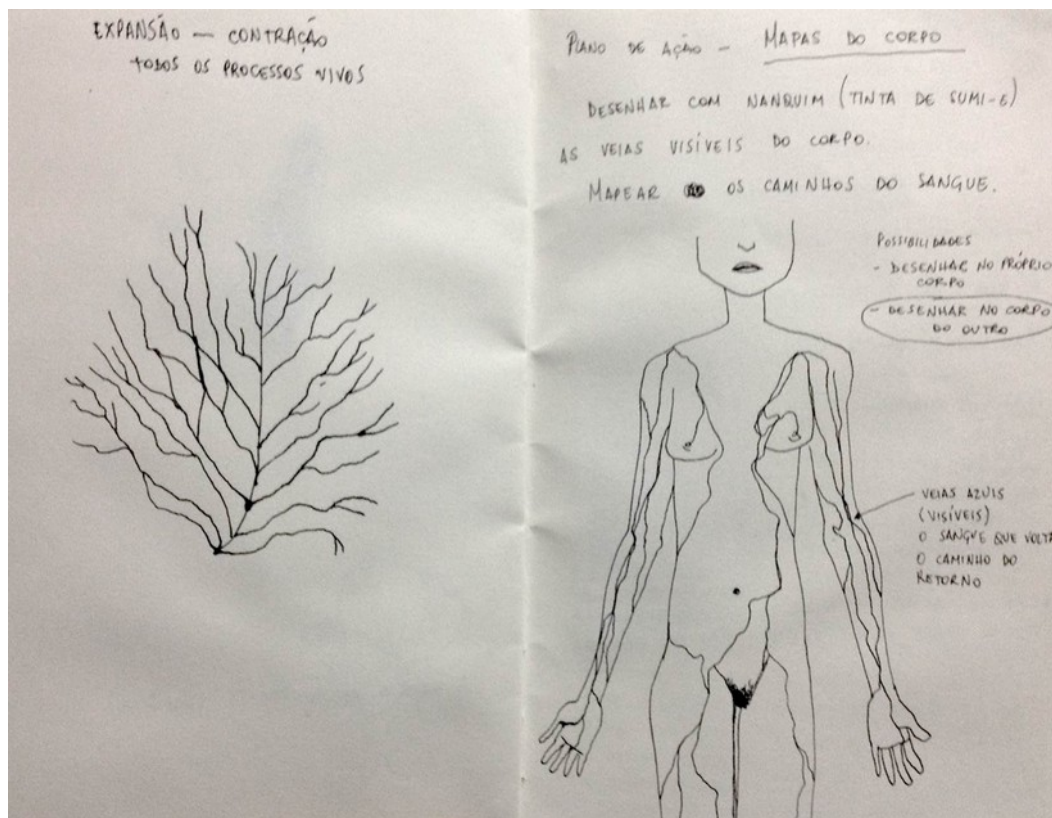 EXPANSÃO — CONTRAÇÃO
TODOS OS PROCESSOS VIVOS
PLANO DE AÇÃO – MAPAS DO CORPO
DESENHAR COM NANQUIM (TINTA DE SUMI-E)
AS VEIAS VISÍVEIS DO CORPO.
MAPEAR OS CAMINHOS DO SANGUE.
POSSIBILIDADES
- DESENHAR NO PRÓPRIO
CORPO
- DESENHAR NO CORPO
DO OUTRO
VEIAS AZUIS
(VISÍVEIS)
O SANGUE QUE VOLTA
O CAMINHO DO
RETORNO